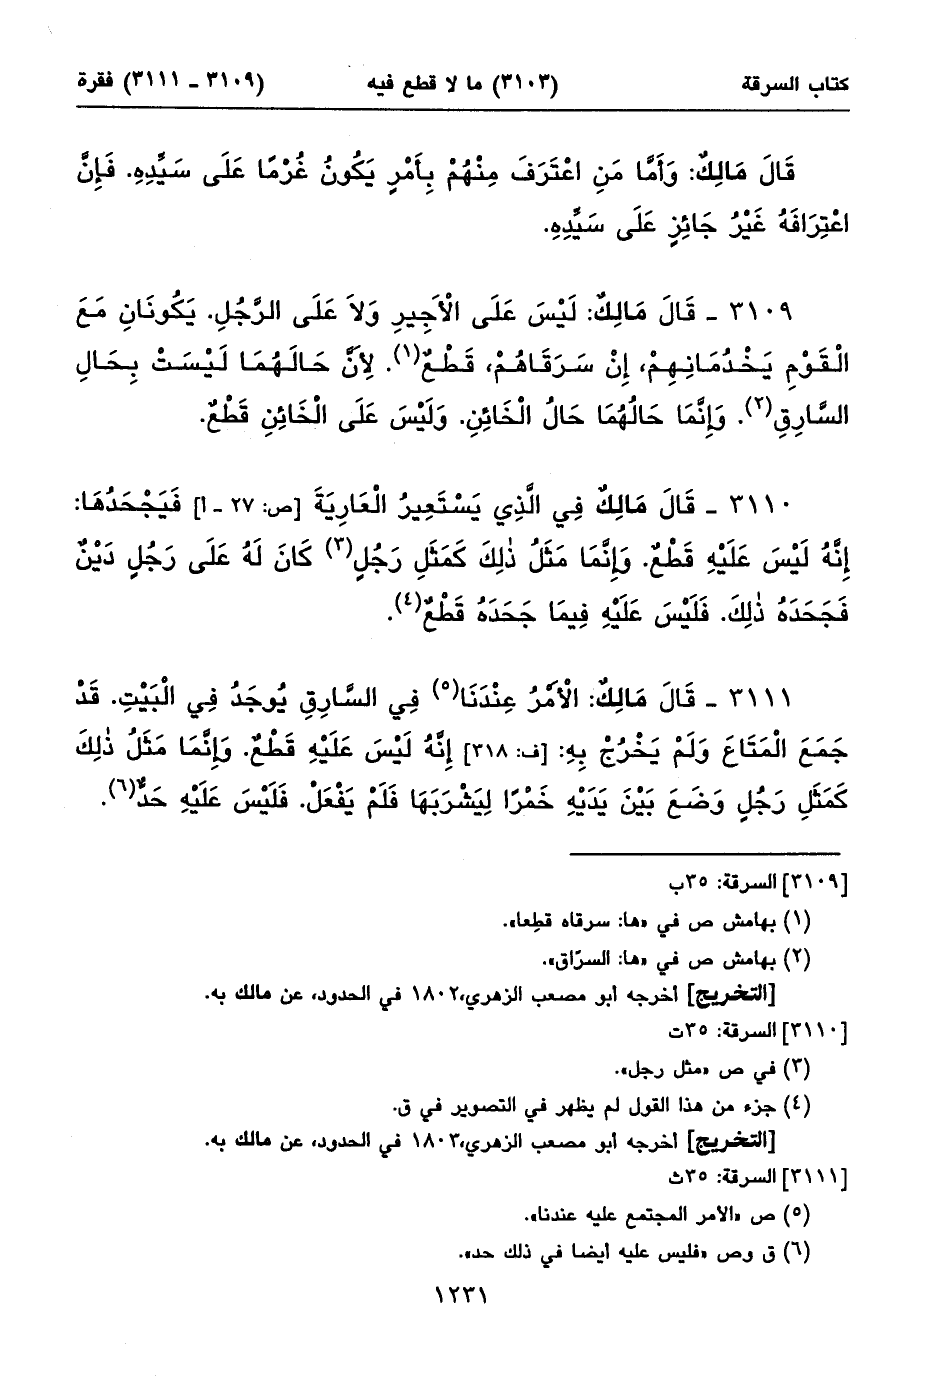 كتاب السرقة (٣١٠٣) ما لا قطع فيه (٣١٠٩ ـ ٣١١١) فقرة
قَالَ مَالِكٌ: وَأَمَّا مَنِ اعْتَرَفَ مِنْهُمْ بِأَمْرٍ يَكُونُ غُرْمًا عَلَى سَيِّدِهِ. فَإِنَّ
اعْتِرَافَهُ غَيْرُ جَائِزٍ عَلَى سَيِّدِهِ.
٣١٠٩ ـ قَالَ مَالِكٌ: لَيْسَ عَلَى الْأَجِيرِ وَلاَ عَلَى الرَّجُلِ. يَكُونَانِ مَعَ
الْقَوْمِ يَخْدُمَانِهِمْ، إِنْ سَرَقَاهُمْ، قَطْعٌ(١). لِأَنَّ حَالَهُمَا لَيْسَتْ بِحَالِ
السَّارِقِ(٢). وَإِنَّمَا حَالُهُمَا حَالُ الْخَائِنِ. وَلَيْسَ عَلَى الْخَائِنِ قَطْعٌ.
٣١١٠ ـ قَالَ مَالِكٌ فِي الَّذِي يَسْتَعِيرُ الْعَارِيَةَ [ص: ٢٧ ـ ا] فَيَجْحَدُهَا:
إِنَّهُ لَيْسَ عَلَيْهِ قَطْعٌ. وَإِنَّمَا مَثَلُ ذٰلِكَ كَمَثَلِ رَجُلٍ(٣) كَانَ لَهُ عَلَى رَجُلٍ دَيْنٌ
فَجَحَدَهُ ذٰلِكَ. فَلَيْسَ عَلَيْهِ فِيمَا جَحَدَهُ قَطْعٌ(٤).
٣١١١ ـ قَالَ مَالِكٌ: الْأَمْرُ عِنْدَنَا(٥) فِي السَّارِقِ يُوجَدُ فِي الْبَيْتِ. قَدْ
جَمَعَ الْمَتَاعَ وَلَمْ يَخْرُجْ بِهِ: [ف: ٣١٨] إِنَّهُ لَيْسَ عَلَيْهِ قَطْعٌ. وَإِنَّمَا مَثَلُ ذٰلِكَ
كَمَثَلِ رَجُلٍ وَضَعَ بَيْنَ يَدَيْهِ خَمْرًا لِيَشْرَبَهَا فَلَمْ يَفْعَلْ. فَلَيْسَ عَلَيْهِ حَدٌّ(٦).
[٣١٠٩] السرقة: ٣٥ب
(١) بهامش ص في «ها: سرقاه قطعا».
(٢) بهامش ص في «ها: السرّاق».
[التخريج] أخرجه أبو مصعب الزهري،١٨٠٢ في الحدود، عن مالك به.
[٣١١٠] السرقة: ٣٥ت
(٣) في ص «مثل رجل».
(٤) جزء من هذا القول لم يظهر في التصوير في ق.
[التخريج] أخرجه أبو مصعب الزهري،١٨٠٣ في الحدود، عن مالك به.
[٣١١١] السرقة: ٣٥ث
(٥) ص «الأمر المجتمع عليه عندنا».
(٦) ق وص «فليس عليه أيضا في ذلك حد».
١٢٣١